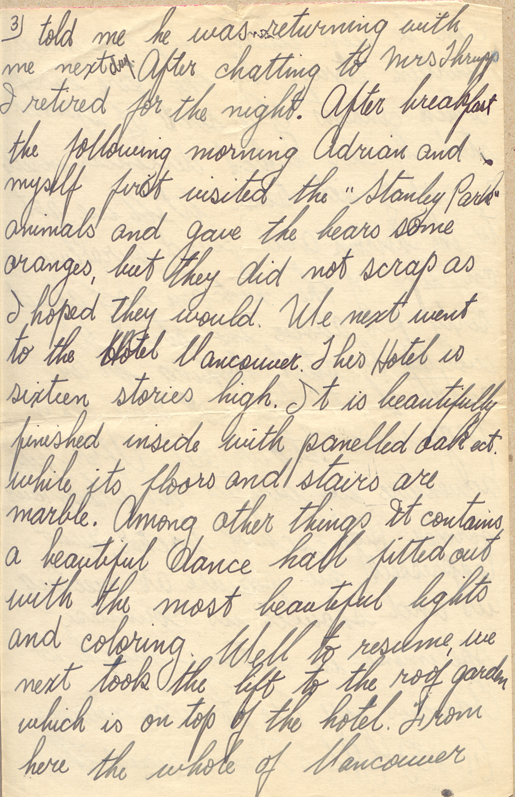 3) told me he was returning with
me next day. After chatting to Mrs Thrupp
I retired for the night. After breakfast
the following morning Adrian and
myself first visited the "Stanley Park"
animals and gave the bears some
oranges, but they did not scrap as
I hoped they would. We next went
to the Hotel Vancouver. This Hotel is
sixteen stories high. It is beautifully
finished inside with panelled oak ect.
while its floors and stairs are
marble. Among other things it contains
a beautiful dance hall fitted out
with the most beautiful lights
and coloring. Well to resume, we
next took the lift to the roof garden
which is on top of the hotel. From
here the whole of Vancouver